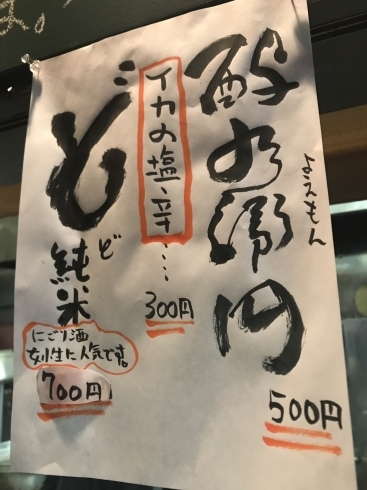 す。
酔右衛門
よえもん
500円
イカの塩辛……
300円
ど
ど
純米
にごり酒
女性に人気です。
700円